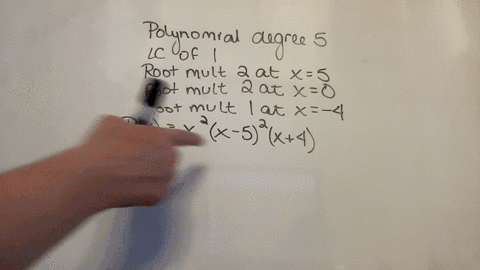 Polynomial degree 5
LC of 1
Root mult 2 at x=5
Root mult 2 at x=0
Root mult 1 at x=-4
= x²(x-5)²(x+4)